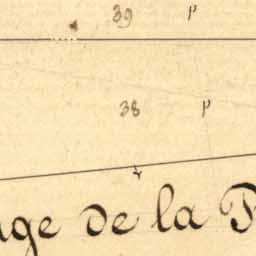 39 p
38 p
age de la